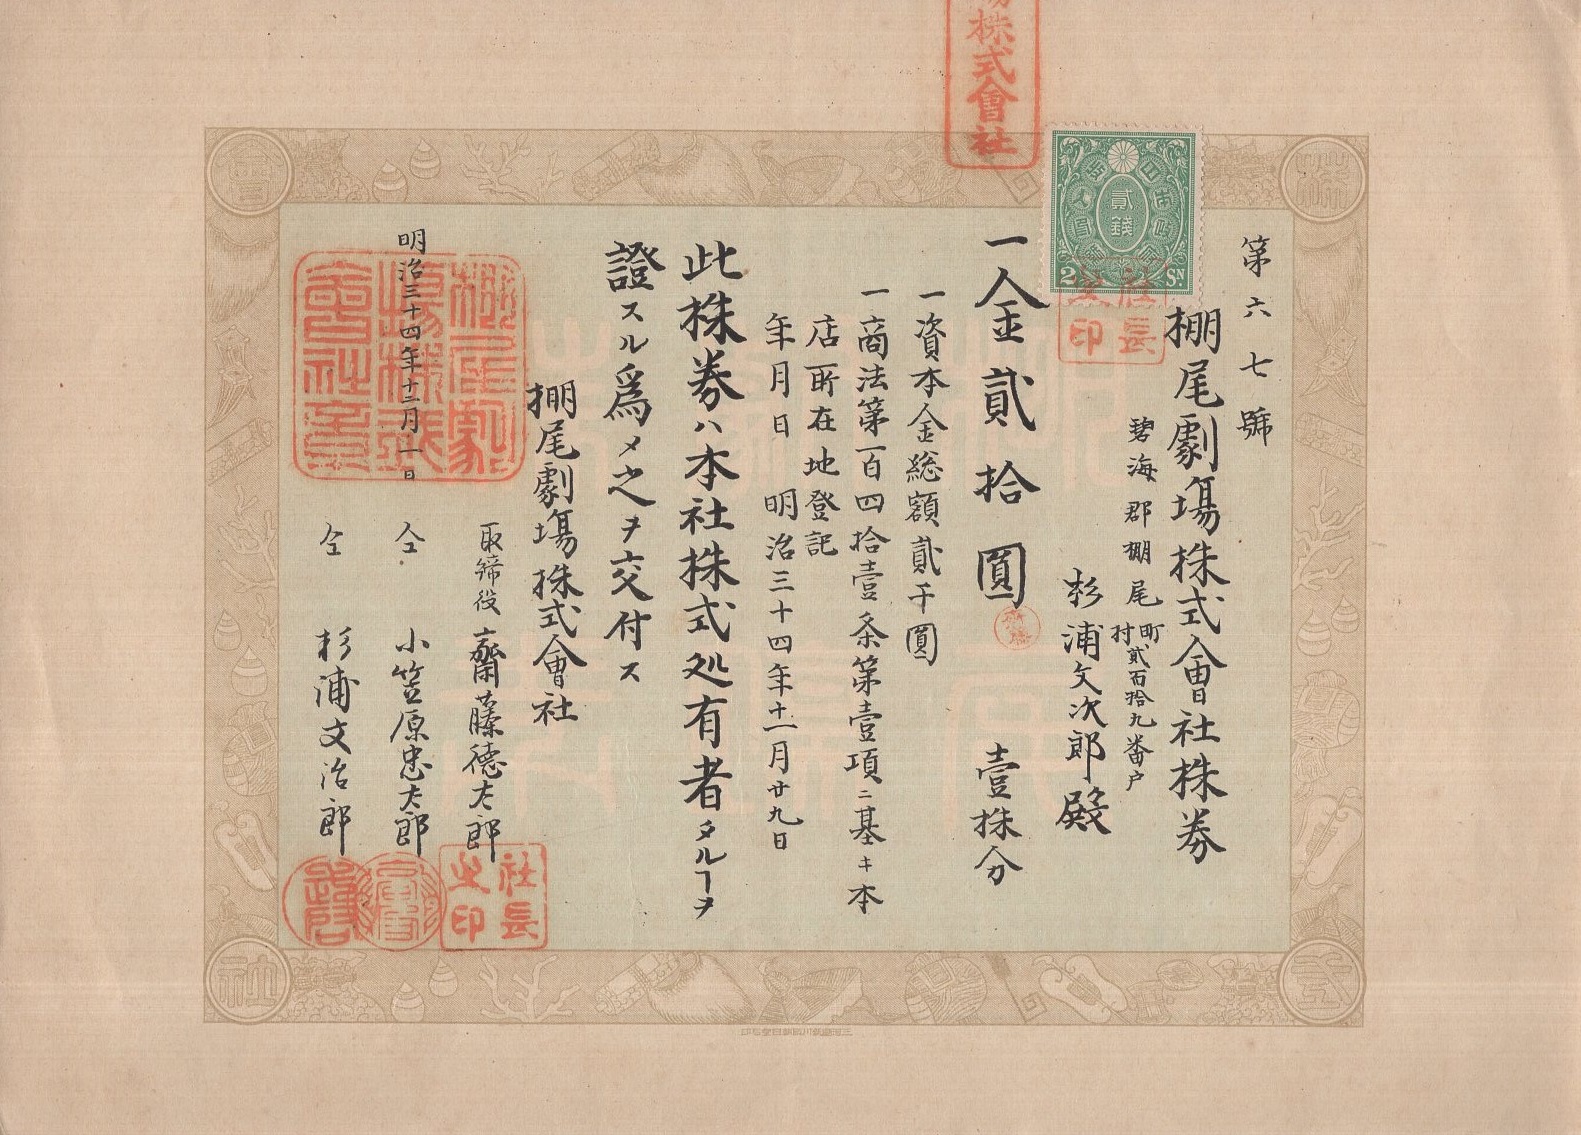 第六七號
棚尾劇塲株式會社株券
碧海郡棚尾町村貳百拾九番戸
杉浦文次郎殿
一金貳拾圓 壹株分
一資本金総額貳千圓
一商法第一百四拾壹条第壹項ニ基キ本
店所在地登記
年月日 明治三十四年十一月廿九日
此株券ハ本社株式処有者タルヿヲ
證スル爲メ之ヲ交付ス
棚尾劇塲株式會社
取締役 齋藤德太郎
仝 小笠原忠太郎
明治三十四年十二月一日
仝 杉浦文治郎
株式會社
貳錢
2 SN.
社長之印
社長之印
株式會社